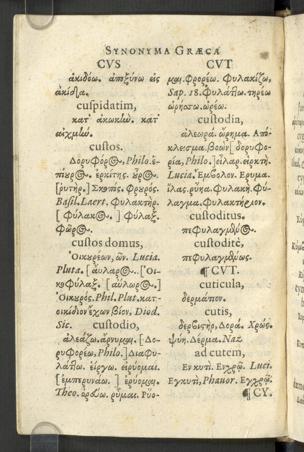 SYNONYMA GRÆCA
CVS
ἀκιδόω. ἀπεξύνω εἰς
ἀκίδα.
cuspidatim,
κατ' ἀκωκὼ. κατ'
αἰχμὼ.
custos.
Δορυφόρος. Philo.
ἐρκίτης.
[ῥυτὴρ.] Σκοπὸς. Φρυρὸς.
Basil. Laert. Φυλακτὴρ.
[Φύλακος.] Φύλαξ.
custos domus,
Οἰκυρέων, ὧν. Lucia.
Pluta. [αὔλαρος.] [Οἰ-
κοφύλαξ.] [αὐλωρὸς.]
Οἰκυρὸς. Phil. Plut. κατ-
οικίδιον ἔχων βίον. Diod.
Sic.
custodio,
ἀλεάζω. ἄρνυμαι. [Δο-
ρυφορέω, Philo.] Διαφυ-
λάττω. εἴργω. εἰρύομαι.
[ἐμπερυνάω.] ἐρύομαι.
Theo. ῥύομαι. Ρυο-
CVT
μαι. Φρορέω. Φυλακίζω,
Sap. 18. Φυλάττω. τηρέω
ὠρέω.
custodia,
ἀλεωρά. ὤρημα. Ἀπό-
κλεισμα. [δορυφο-
ρία, Philo.] εἱρκτή.
Lucia. Ἔμβολον. Ἔρυμα.
Φυλακή. Φύ-
λαγμα. Φυλακτήριον.
custoditus.
πεφυλαγμένος.
custoditè,
πεφυλαγμένως.
¶ CVT.
cuticula,
δερμάτιον.
cutis,
Δορά. Χρώς.
Δέρμα. Naz
ad cutem,
Ἐν κυτί. Ἐγχρῷ. Luci.
Ἐγκυτί, Phauor. Ἐγχρῷ.
¶ CY.